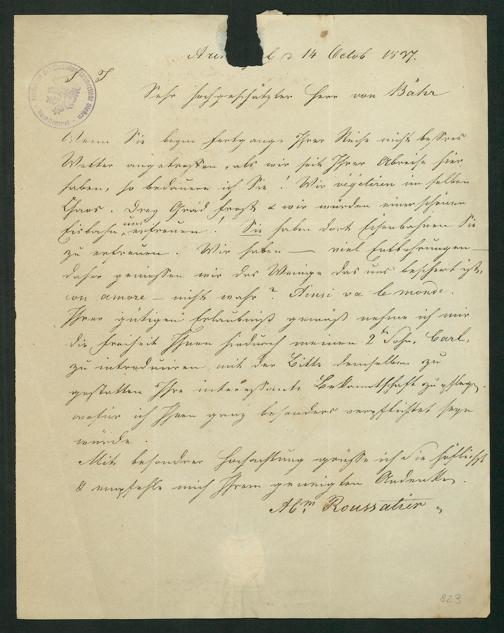 14 Octob 1837.
Sehr hochgeschätzter Herr von Bähr
Wenn Sie beym Fortgange Ihrer Reise nicht besseres
Wetter angetroffen, als wir seit Ihrer Abreise hier
haben, so bedaure ich Sie! Wir vegetiren im selben
Chaos. Drey Grad Frost & wir würden einer schönen
Eisbahn uns erfreuen. Sie haben dort Eisenbahnen Sie
zu erfreuen. Wir haben — viel Entbehrungen —
daher geniessen wir das Wenige das uns beschert ist,
con amore — nicht wahr? Ainsi va le monde.
Ihrer gütigen Erlaubniß gemäß nehme ich mir
die Freiheit Ihnen hiedurch meinen 2ten Sohn, Carl,
zu introduciren mit der Bitte demselben zu
gestatten Ihre interessante Bekanntschaft zu pflegen,
wofür ich Ihnen ganz besonders verpflichtet seyn
würde.
Mit besondrer Hochachtung grüsse ich Sie höflichst
& empfehle mich Ihrem geneigten Andenken.
Abm Roussatier
823